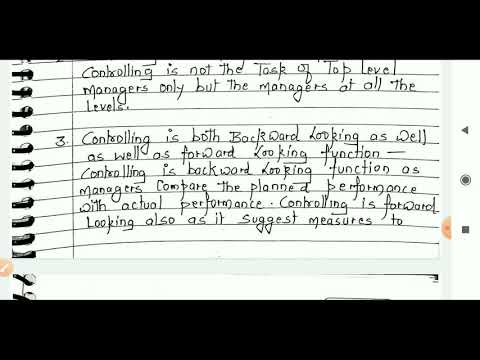 Controlling is not the Task of Top Level
managers only but the managers at all the
levels.
3. Controlling is both Backward Looking as well
as well as forward Looking function —
Controlling is backward Looking function as
managers compare the planned performance
with actual performance. Controlling is forward
Looking also as it suggest measures to